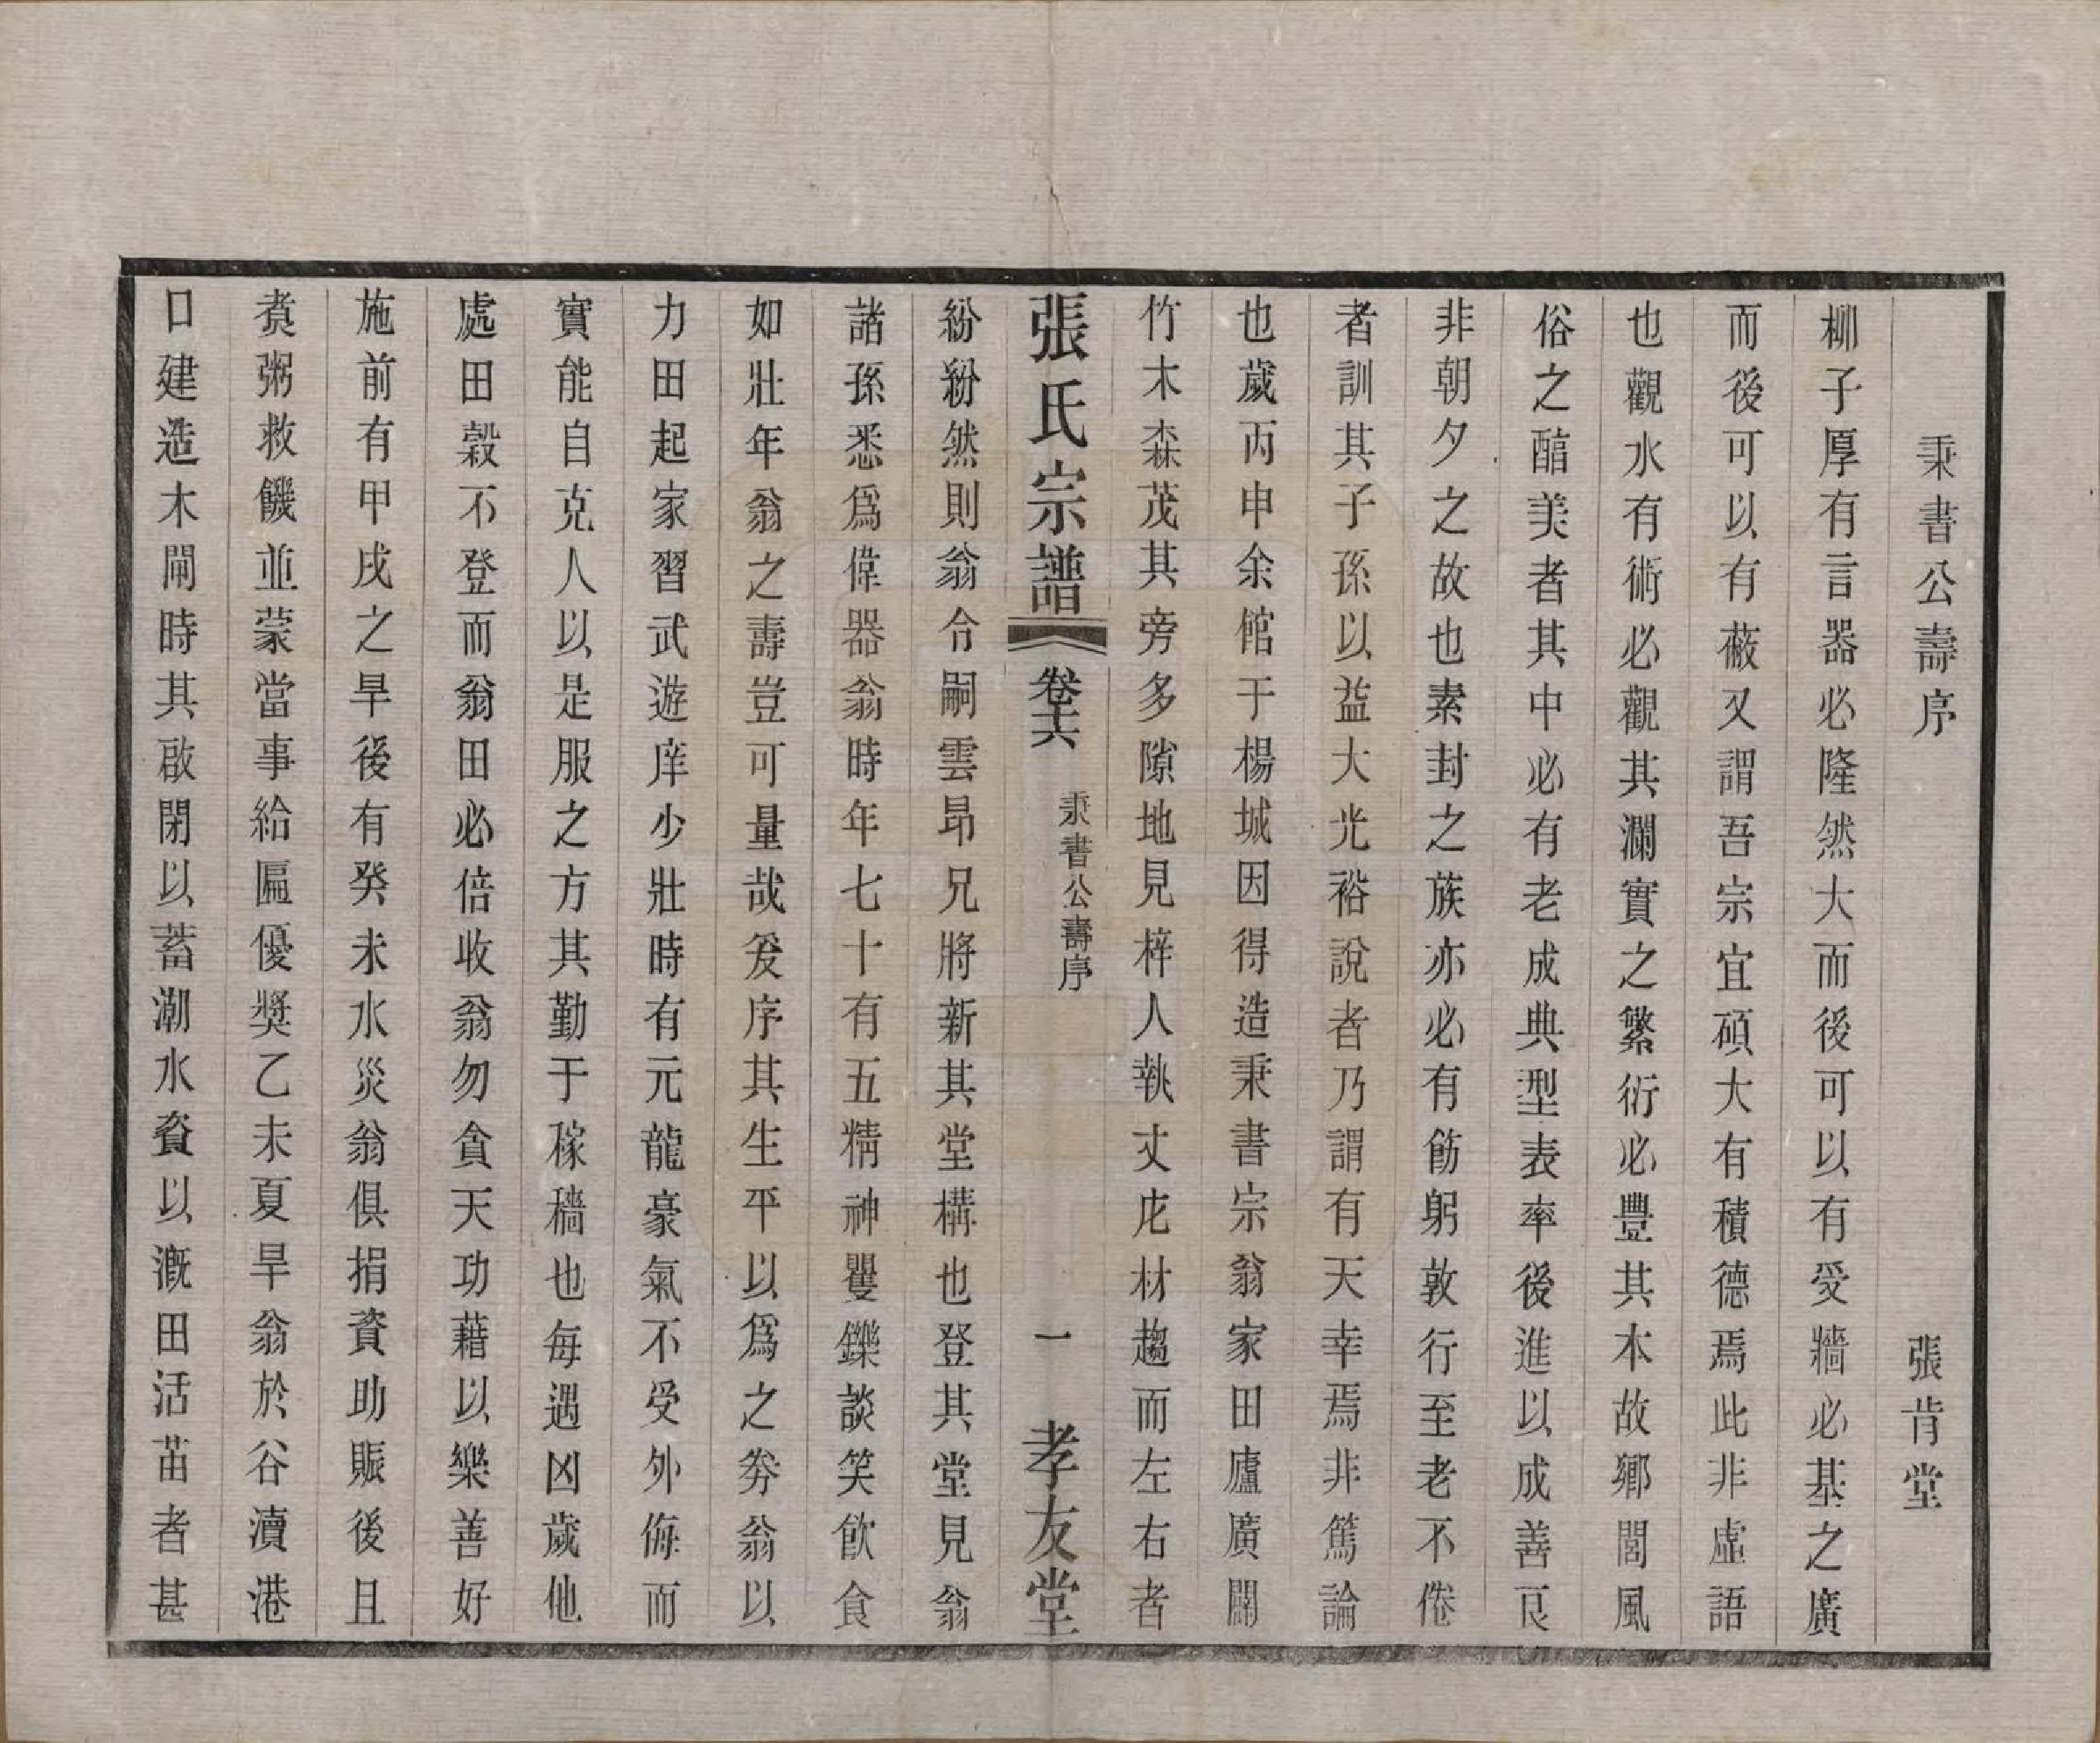 秉書公壽序　　張肯堂
柳子厚有言器必隆然大而後可以有受牆必基之廣
而後可以有蔽又謂吾宗宜碩大有積德焉此非虛語
也觀水有術必觀其瀾實之繁衍必豐其本故鄉閭風
俗之醕美者其中必有老成典型表率後進以成善良
非朝夕之故也素封之族亦必有飭躬敦行至老不倦
者訓其子孫以益大光裕說者乃謂有天幸焉非篤論
也歲丙申余館于楊城因得造秉書宗翁家田廬廣闢
竹木森茂其旁多隙地見梓人執丈庀材趨而左右者
張氏宗譜 卷十六 秉書公壽序 一 孝友堂
紛紛然則翁令嗣雲昂兄將新其堂構也登其堂見翁
諸孫悉爲偉器翁時年七十有五精神矍鑠談笑飲食
如壯年翁之壽豈可量哉爰序其生平以爲之劵翁以
力田起家習武遊庠少壯時有元龍豪氣不受外侮而
實能自克人以是服之方其勤于稼穡也每遇凶歲他
處田穀不登而翁田必倍收翁勿貪天功藉以樂善好
施前有甲戌之旱後有癸未水災翁俱捐資助賑後且
煑粥救饑並蒙當事給匾優獎乙未夏旱翁於谷瀆港
口建造木閘時其啟閉以蓄潮水資以漑田活苗者甚